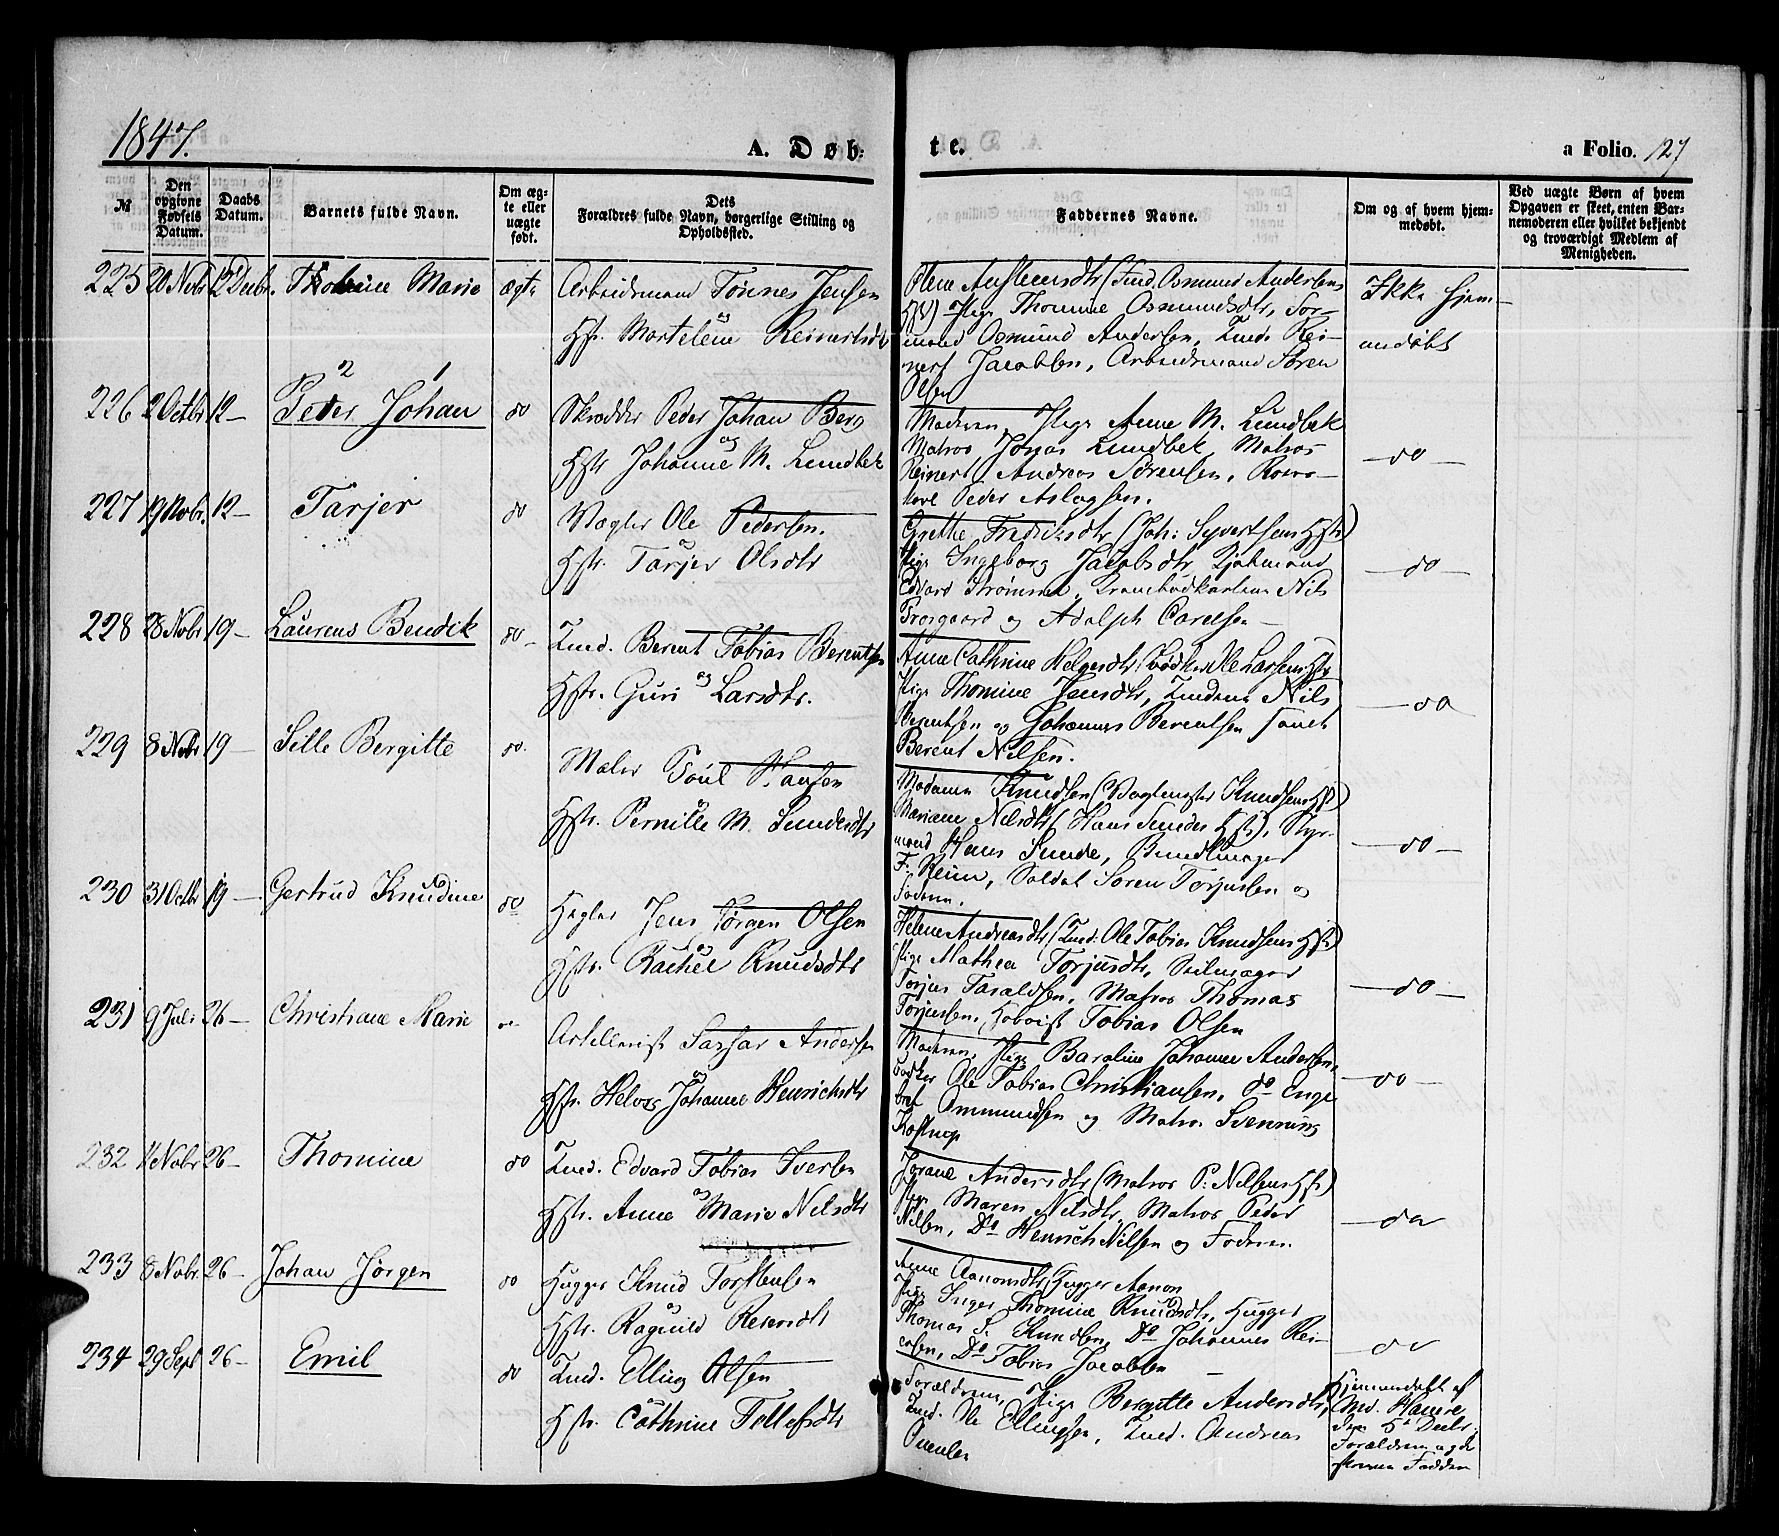 1847.
A. Døb:
te.
a Folio. 127
№
Den opgivne Fødsels Datum.
Daabs Datum.
Barnets fulde Navn.
Om ægte eller uægte født.
Dets Forældres fulde Navn, borgerlige Stilling og Opholdssted.
Faddernes Navne.
Om og af hvem hjemmedøbt.
Ved uægte Børn af hvem Opgaven er skeet, enten Barnemoderen eller hvilket bekjendt og troværdigt Medlem af Menigheden.
225 20 Nobr 12 Decbr. Thomine Marie ægte Arbeidsmand Tønnes Jensen
og
Hstr. Martelene Reinertsdtr
Olene Ansteensdtr (Tmd. Osmund Andersens
Hst) Pige Thomine Osmundsdtr, For-
mand Osmund Andersen, Tmd. Rei-
nert Jacobsen, Arbeidsmand Søren
Olsen
Ikke hjem-
medøbt
2 1
226 2 Octbr 12 - Peder Johan do Skrædder Peder Johan Berg
og
Hstr Johanne M. Lundbek
Moderen, Pige Anne M. Lundbek
Matros Jonas Lundbek, Matros
Reinert Andreas Sørensen,
Peder Aslagsen.
- do -
227 19 Nobr. 12 - Tarjer do Vægter Ole Pedersen.
og
Hstr. Tarjer Olsdtr
Grethe Fredriksdtr (Joh: Syvertsens Hst)
Pige Ingeborg Jacobsdtr,
Edvard Strømme, Krambodkarlene Nils
Prosgaard og Adolph Carelsen -
- do -
228 28 Nobr 19 - Laurens Bendik do - Tmd. Berent Tobias Berentsen
og
Hstr. Guri Larsdtr.
Anne Cathrine Helgesdtr (Bødker Ole Larsens Hstr
Pige Thomine Jensdtr, Tmdene Nils
Berentsen og Johannes Berentsen samt
Berent Nilsen.
- do
229 8 Nobr 19 - Sille Bergitte do. Maler Poul Hansen
og
Hstr. Pernille M. Sundesdtr
Madame Knudsen (Vagtmester Knudsens Hst)
Mariane Nilsdtr (Hans Sundes Hst), Styr-
mand Hans Sunde,
F. Reim, Soldat Søren Torjussen og
Faderen.
- do -
230 31 Octbr 19 - Gertrud Knudine do Hegler Jens Jørgen Olsen
og
Hstr. Rachel Knudsdtr
Helene Andreasdtr (Tmd: Ole Tobias Knudsens Hst)
Pige Mathea Torjusdtr, Seilmager
Torjus Taraldsen, Matros Thomas
Torjussen, Tobias Olsen
- do -
231 9 Juli 26 - Christiane Marie do Artillerist Andersen
og
Hstr. Johanne Henrichsdtr
Moderen, Pige Baroline Johanne Andersen,
Bødker Ole Tobias Christiansen, do Enge
bret Ommundsen og Matros Svenning
Kastrup
- do -
232 Nobr 26 - Thomine do Tmd. Edvard Tobias Iversen
og
Hstr. Anne Marie Nilsdtr
Jorane Andersdtr (Matros P. Nilsens Hst)
Pige Maren Nilsdtr, Matros Peder
Nilsen, Do Henrich Nilsen og Faderen.
- do
233 8 Nobr. 26 - Johan Jørgen do Hugger Knud Torstensen
og
Hstr. Ragnild Reiersdtr
Anne Aanonsdtr (Hugger Aanon
Pige Inger Thomine Knudsdtr, Hugger
Thomas S. Knudsen, Do Johannes Rei-
ersen, Do Tobias Jacobsen
- do
234 29 Sept 26 - Emil do Tmd. Elling Olsen
og
Hstr. Cathrine Tellefsdtr
Forældrene, Pige Bergitte Andersdtr,
Tmd. Ole Ellingsen, Tmd. Andreas
Ouensen
Hjemmedøbt af
Md. Haure
Forældrene og de
samme Faddere